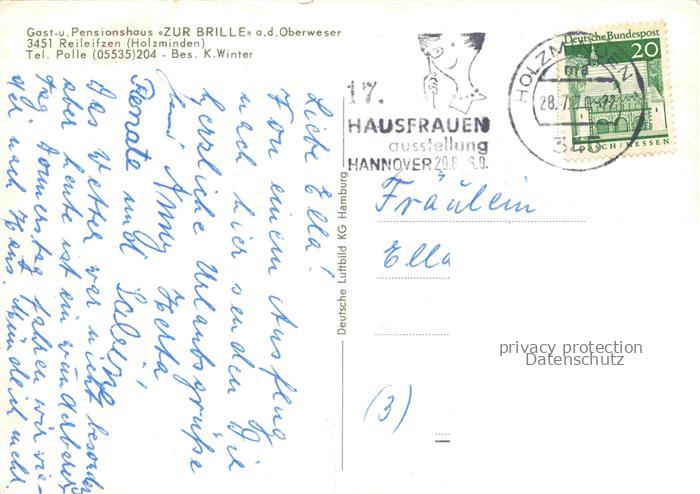 Gast-u. Pensionshaus «ZUR BRILLE» a.d. Oberweser
3451 Reileifzen (Holzminden)
Tel. Polle (05535)204 - Bes. K. Winter
Liebe Ella!
Von einem Ausflug
nach hier senden Dir
herzliche Urlaubsgrüße
Anny Herta
Renate und
Das Wetter war nicht besonders
aber heute ist ein wunderbarer
Tag Donnerstag fahren wir wie-
der nach Haus. mündlich mehr.
Deutsche Luftbild KG Hamburg
17.
HAUSFRAUEN
ausstellung
HANNOVER 29.8 6.9.
HOLZMINDEN
28.7.70
Deutsche Bundespost
20
LORSCH/HESSEN
Fräulein
Ella
(3)
privacy protection
Datenschutz